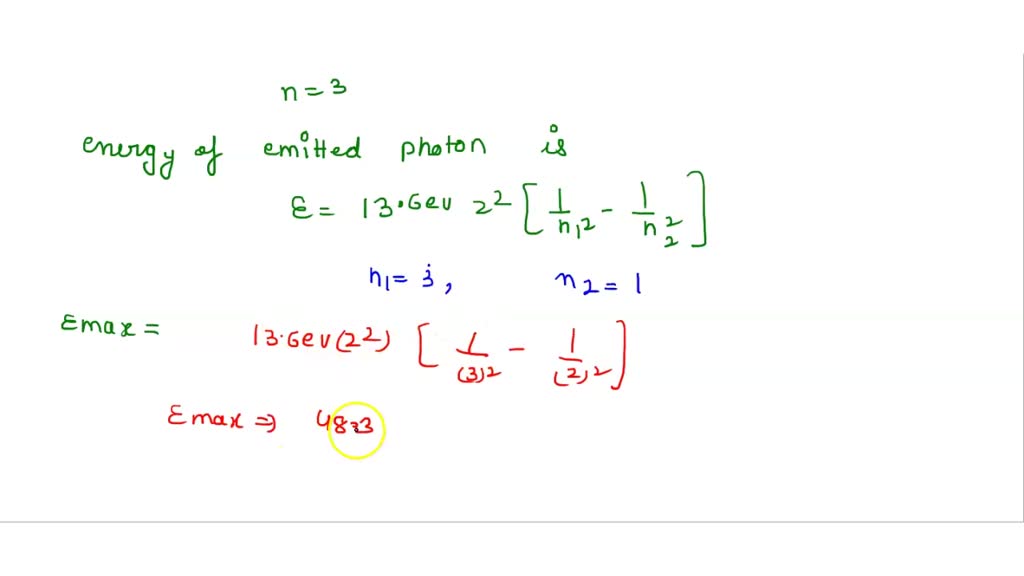 n = 3
energy of emitted photon is
E = 13.6eV Z² [1/n₁² - 1/n₂²]
n₁ = 3, n₂ = 1
Emax = 13.6eV(2²) [1/(3)² - 1/(2)²]
Emax ⇒ 48.3